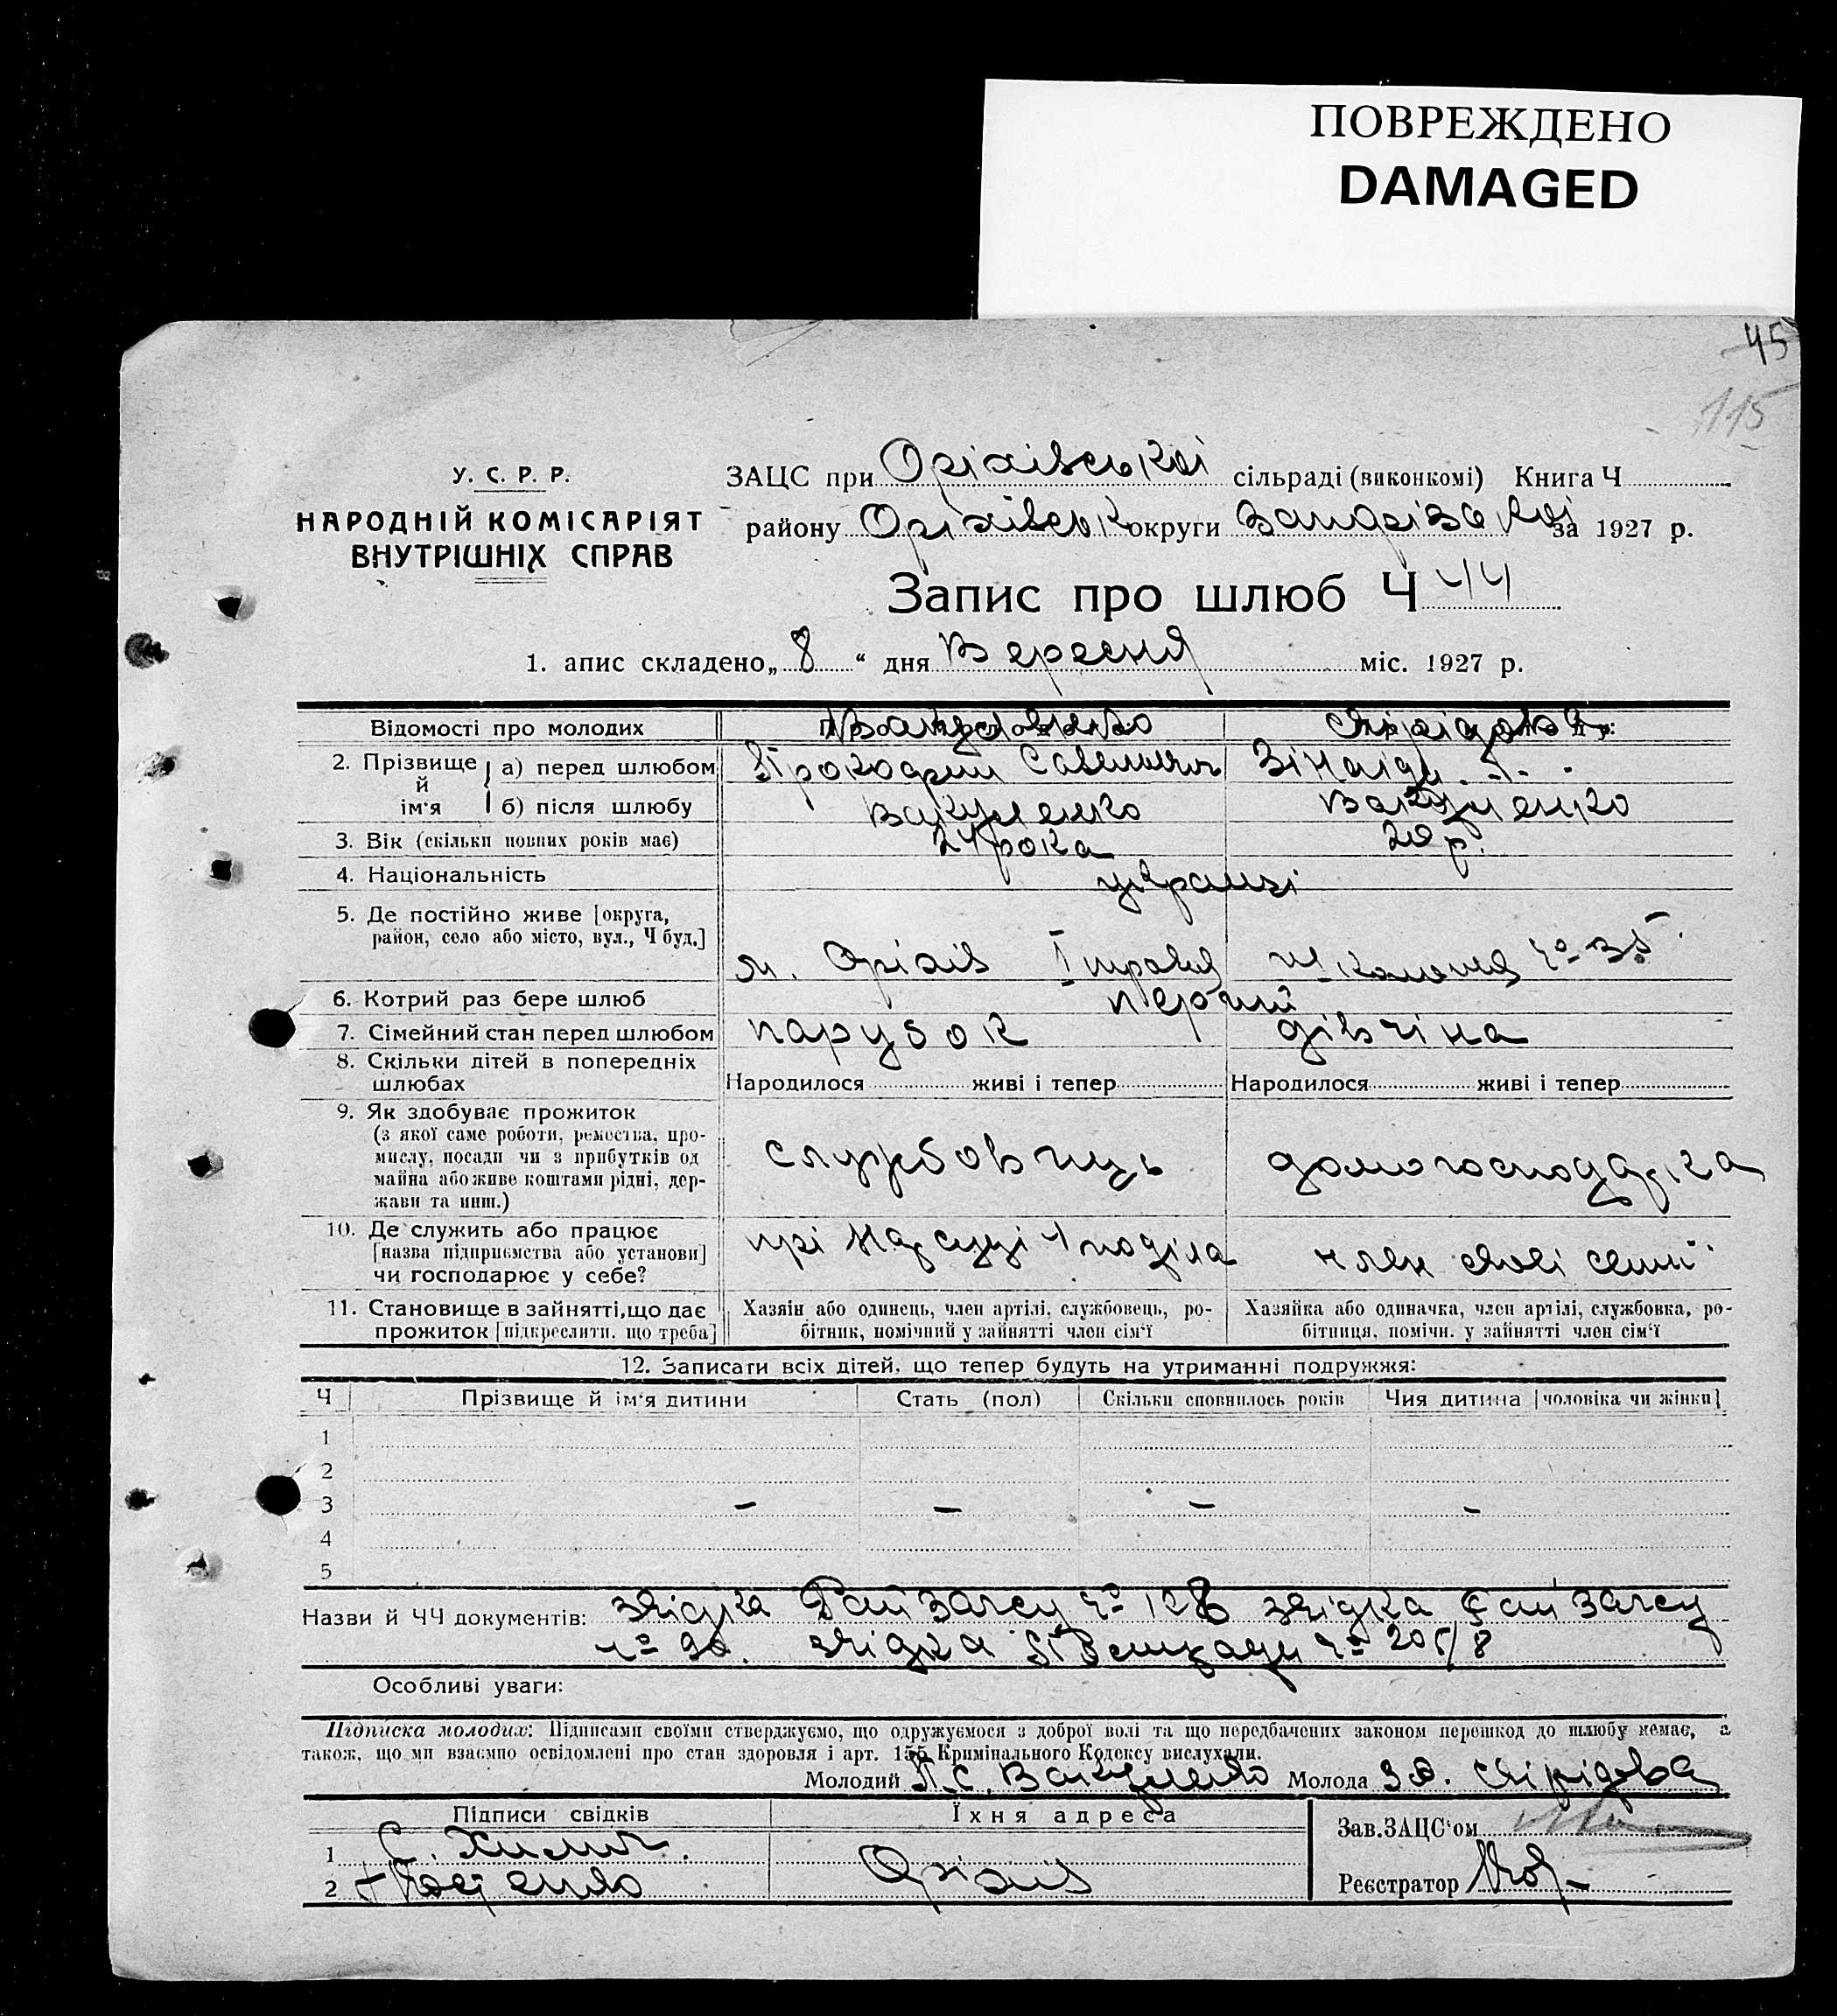 ПОВРЕЖДЕНО
DAMAGED
45
115
У. С. Р. Р.
НАРОДНІЙ КОМІСАРІЯТ
ВНУТРІШНІХ СПРАВ
ЗАЦС при Оріхівської сільраді (виконкомі) Книга Ч
району Оріхівськ округи Запорізької за 1927 р.
Запис про шлюб Ч 44
1. апис складено „ 8 “ дня Вересня міс. 1927 р.
Відомості про молодих Вакуленко Свірідова
2. Прізвище й ім'я а) перед шлюбом Прокофий Савельевич Зінаіда
б) після шлюбу Вакуленко Вакуленко
3. Вік (скільки повних років має) 24 рока 20 р.
4. Національність українці
5. Де постійно живе [округа,
район, село або місто, вул., Ч буд.]
м. Оріхів I Ч° 35
6. Котрий раз бере шлюб первий
7. Сімейний стан перед шлюбом парубок дівчіна
8. Скільки дітей в попередніх
шлюбах Народилося живі і тепер Народилося живі і тепер
9. Як здобуває прожиток
(з якої саме роботи, ремества, про-
мислу, посади чи з прибутків од
майна або живе коштами рідні, дер-
жави та инш.)
службовець домогосподарка
10. Де служить або працює
[назва підприємства або установи]
чи господарює у себе?
прі Нарсуді член своєі семії
11. Становище в зайнятті, що дає
прожиток [підкреслити, що треба]
Хазяін або одинець, член артілі, службовець, ро-
бітник, помічний у зайнятті член сім'ї
Хазяйка або одиначка, член артілі, службовка, ро-
бітниця, помічн. у зайнятті член сім'ї
12. Записати всіх дітей, що тепер будуть на утриманні подружжя:
Ч Прізвище й ім'я дитини Стать (пол) Скільки сповнилось років Чия дитина [чоловіка чи жінки]
1
2
3 – – – –
4
5
Назви й ЧЧ документів: звідка РайЗагсу звідка РайЗагсу
Ч° 90. звідка Ч° 205/8
Особливі уваги:
Підписка молодих: Підписами своїми стверджуємо, що одружуємося з доброї волі та що передбачених законом перешкод до шлюбу немає, а
також, що ми взаємно освідомлені про стан здоровля і арт. 155 Кримінального Кодексу вислухали.
Молодий П. С. Вакуленко Молода З. Ф. Свірідова
Підписи свідків Їхня адреса Зав. ЗАЦС'ом
1
2 Оріхів Реєстратор